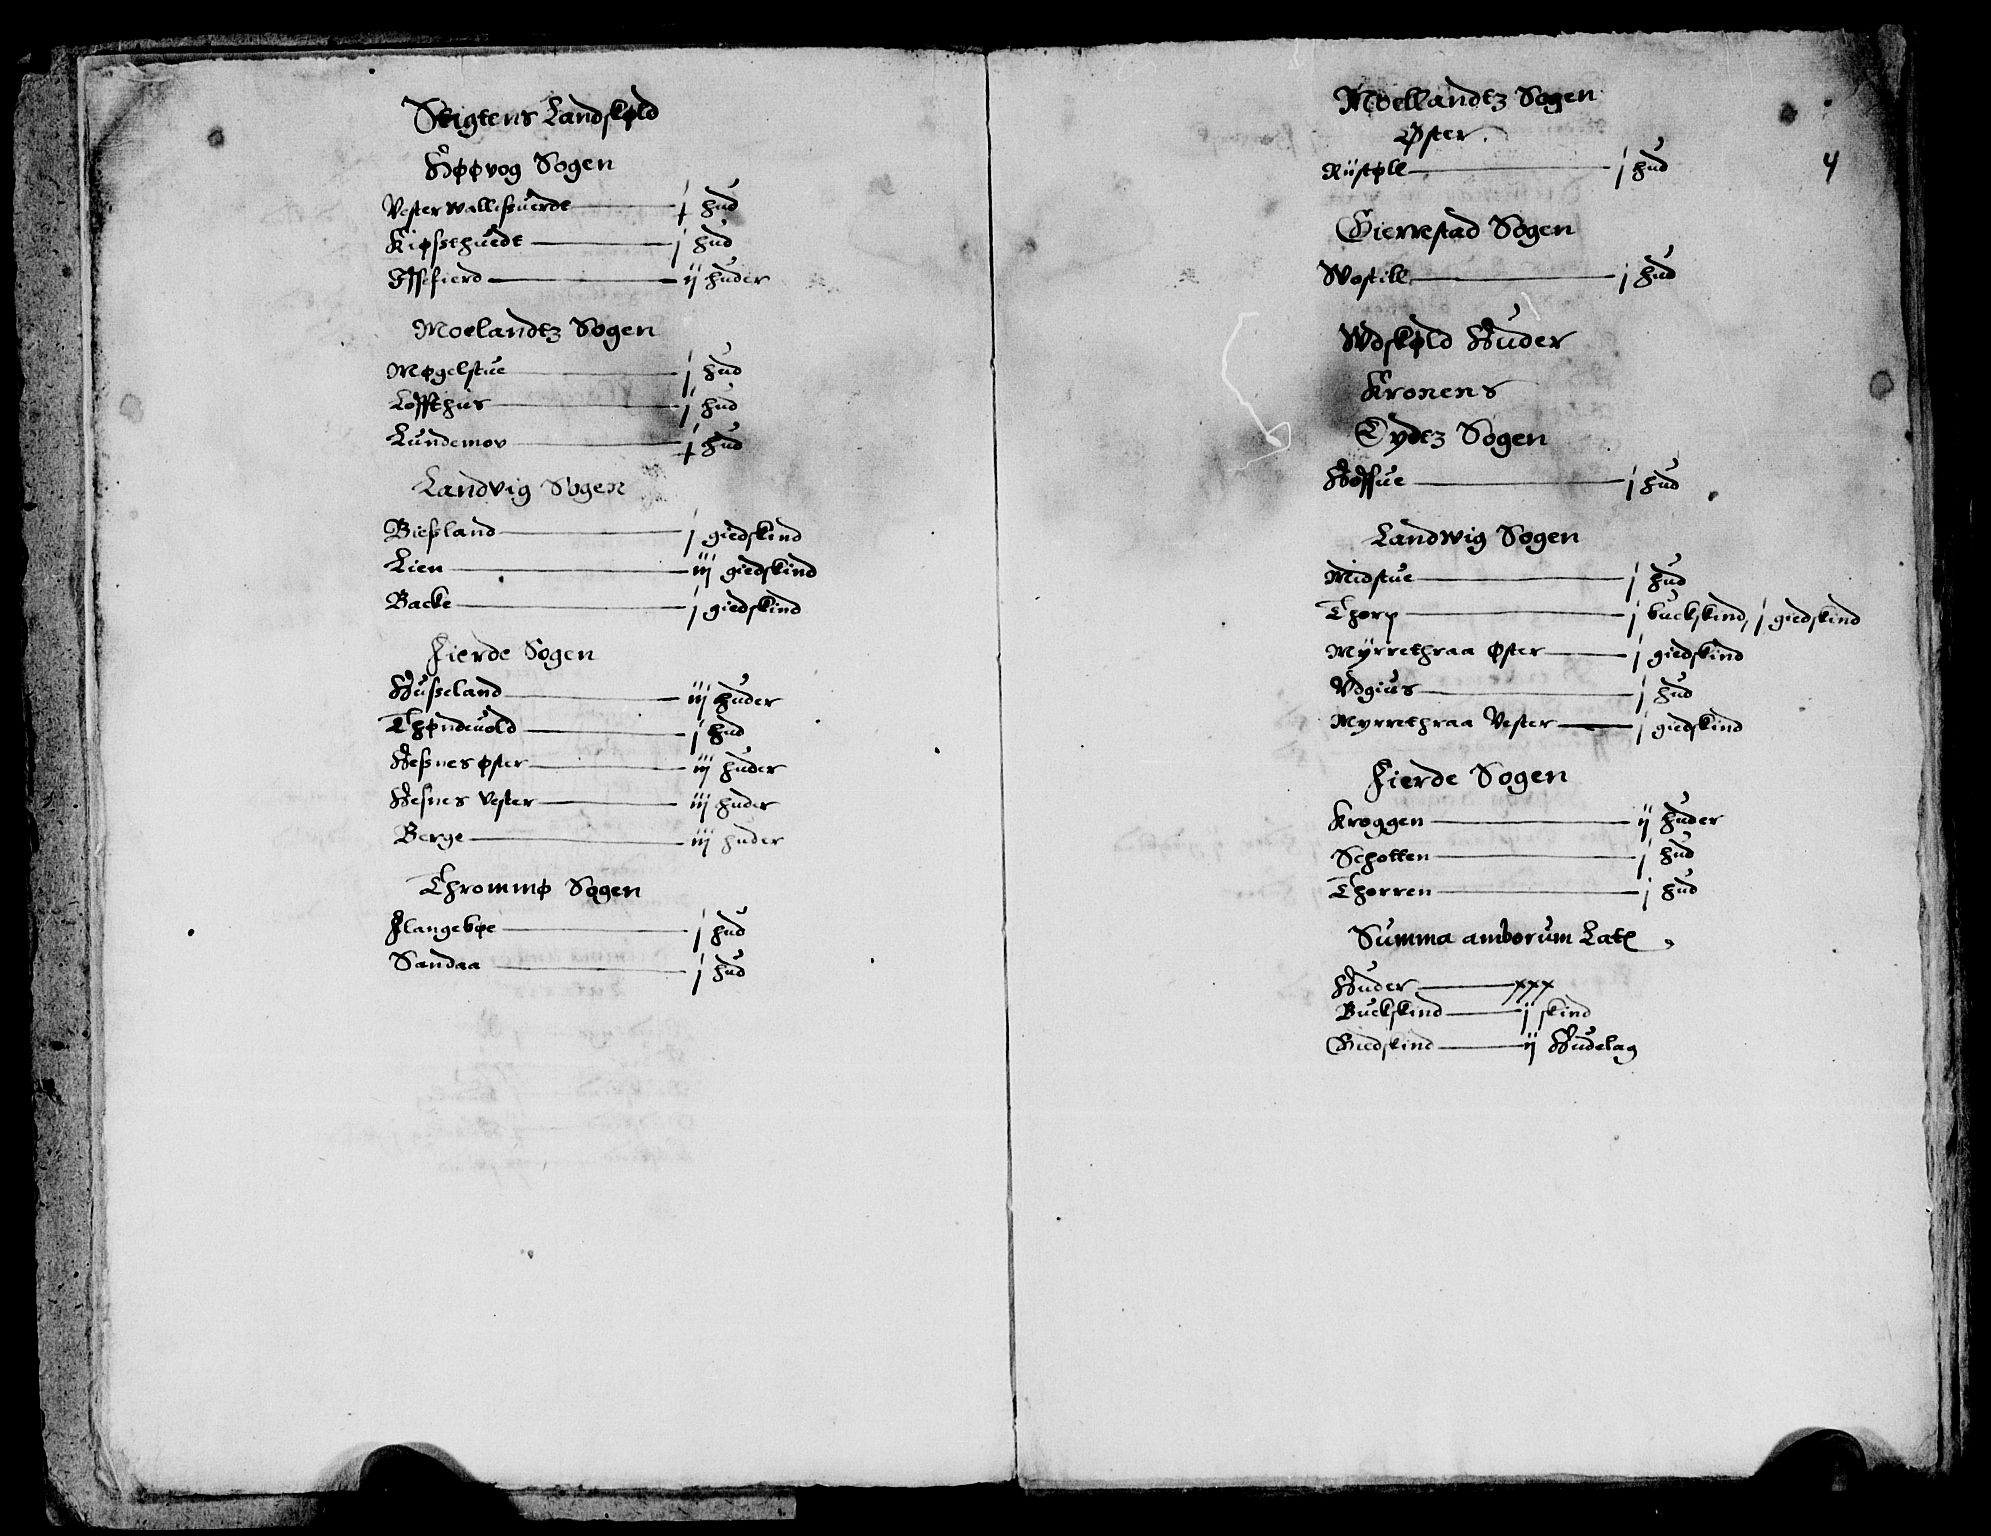 Stigtens Landskøld
Høpvog Sogen
Vester wallissuerdt ——— ɉ hud
Kiøssthuedt ——— j hud
Issefierd ——— ij huder
Moelandtz Sogen
Møgelstue ——— j hud
Loffthus ——— j hud
Lundemov ——— ɉ hud
Landvig Sogen
Biessland ——— j giedskind
Lien ——— iij giedskind
Backe ——— j giedskind
Fierde Sogen
Husseland ——— iij huder
Thøndeuold ——— j hud
Hessnes øster ——— iij huder
Hesnes Vester ——— iij huder
Berge ——— iij huder
Thrommø Sogen
Flangebøe ——— j hud
Sandaa ——— j hud
Moellandtz Sogen
Øster.
Riistøll ——— j hud
4
Gierrestad Sogen
Wostill ——— j hud
Wdskøld Huder
Kronens
Eydtz Sogen
Hoffue ——— j hud
Landwig Sogen
Midstue ——— j hud
Thorp ——— j buckskind, j giedskind
Myrrethraa Øster ——— j giedskind
Vdgius ——— j hud
Myrrethraa Vester ——— j giedskind
Fierde Sogen
Kroggen ——— ij huder
Schotten ——— j hud
Thorren ——— j hud
Summa amborum Late
Huder ——— xxx
Buckskind ——— j skind
Giedskind ——— ij Hudelag